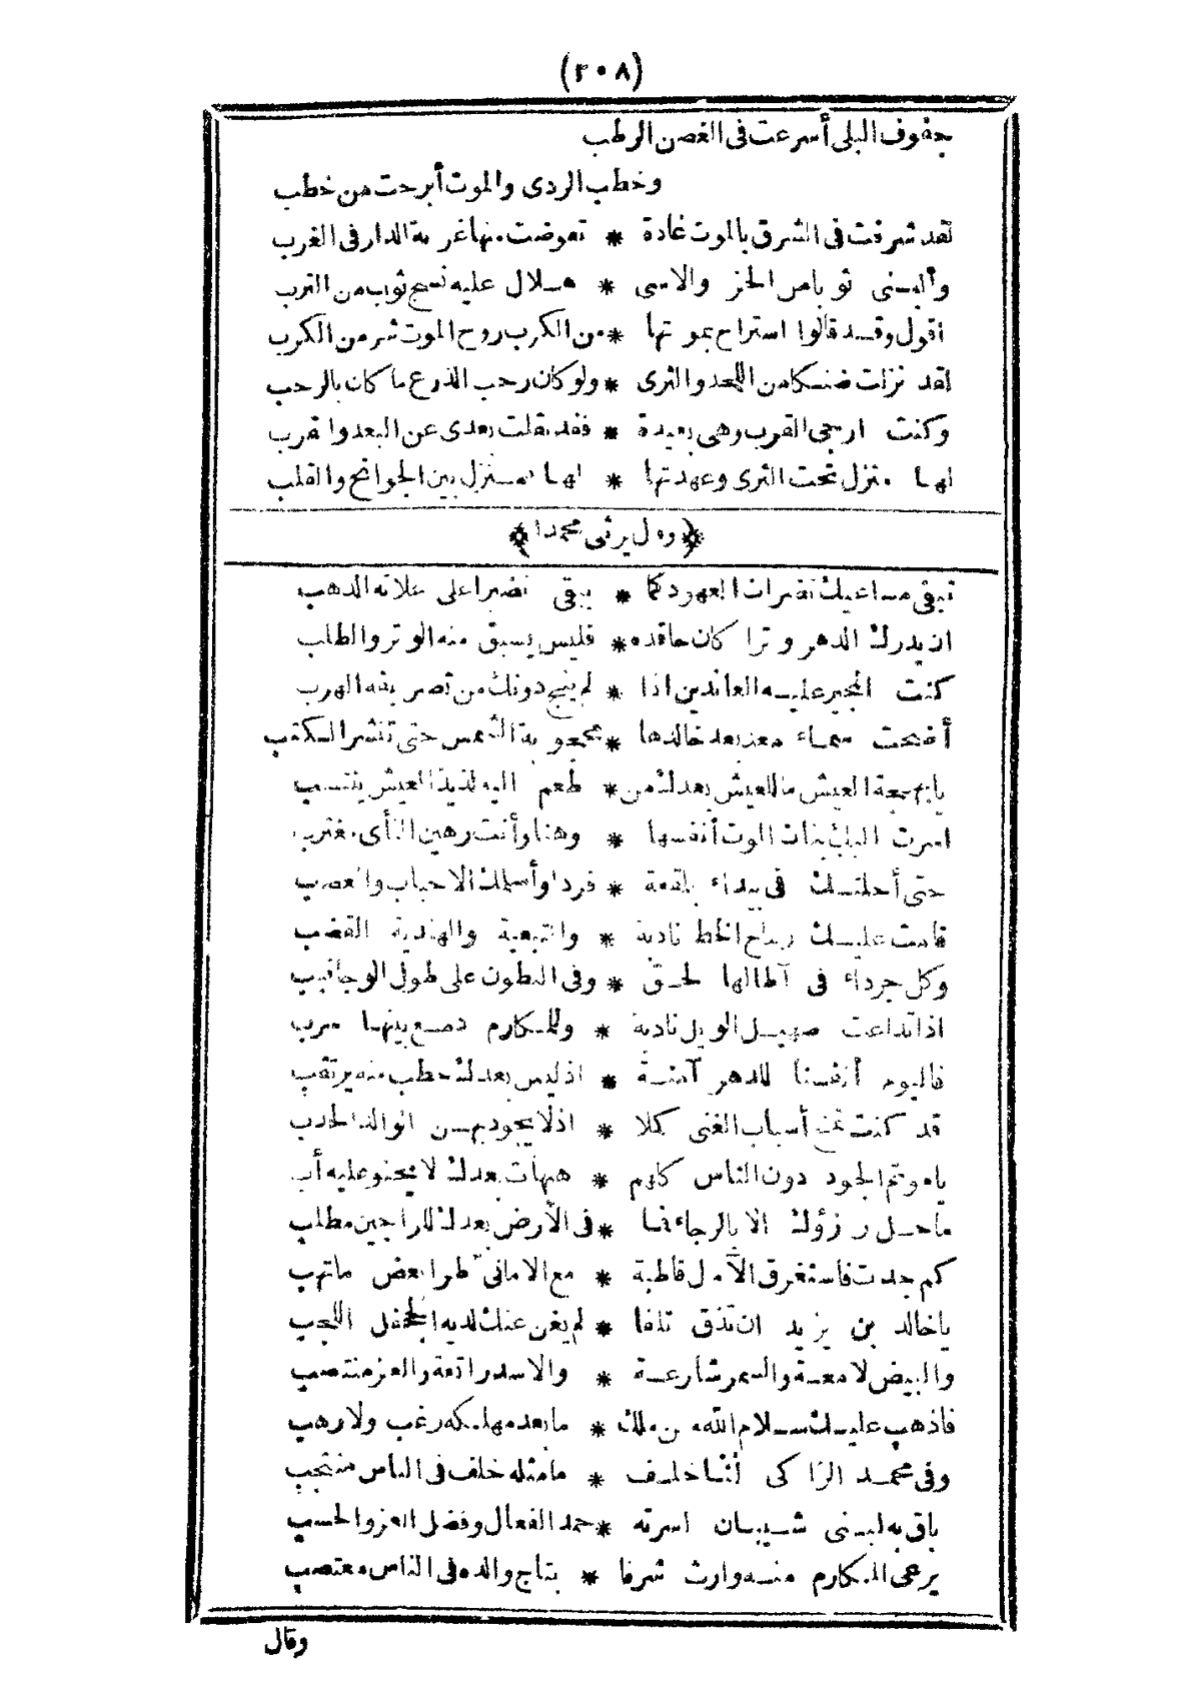 (٣٠٨)
جفوف البلى أسرعت فى الغصن الرطب
وخطب الردى والموت أبرحت من خطب
لقد شرقت فى الشرق بالموت غادة * تعوضت منها غربة الدار فى الغرب
وألبسنى ثوبا من الحزن والاسى * هلال عليه نسج ثوب من الترب
اقول وقد قالوا استراح بموتها * من الكرب روح الموت شر من الكرب
لقد نزلت ضنكا من اللحد والثرى * ولو كان رحب الذرع ما كان بالرحب
وكنت ارجى القرب وهى بعيدة * فقد نقلت بعدى عن البعد والقرب
لها منزل تحت الثرى وعهدتها * لها منزل بين الجوانح والقلب
﴿وقال يرثى محمدا﴾
تبقى مساعيك نضرات العهود كما * يبقى نضيرا على علاته الذهب
ان يدرك الدهر وترا كان حاقده * فليس يسبق منه الوتر والطلب
كنت المجير عليه العائذين اذا * لم ينج دونك من تصريفه الهرب
أضحت سماء معد بعد خالدها * محجوبة الشمس حتى تنشر الكتب
يابهجة العيش ما للعيش بعدك من * طعم اليه لذيذ العيش ينتسب
اسرت اليك بنات الموت أنفسها * وهنا وأنت رهين النأى مغترب
حتى أحلتك فى بيداء بلقعة * فردا وأسلمك الاحباب والعصب
قامت عليك رماح الخط نادبة * والتبعية والهندية القضب
وكل جرداء فى آطالها لحق * وفى البطون على طول الوجا قبب
اذا تداعت صهيل الويل نادبة * وللمكارم دمع بينها سرب
فاليوم أنفسنا للدهر آمنة * اذ ليس بعدك خطب منه يرتقب
قد كنت تمنح أسباب الغنى كملا * اذ لا يجود بهن الوالد الحدب
ياموتم الجود دون الناس كلهم * هيهات بعدك لا يحنو عليه أب
ما حل رزؤك الا بالرجاء فما * فى الأرض بعدك للراجين مطلب
كم جدت فاستغرق الآمال قاطبة * مع الامانى طرا بعض ماتهب
ياخالد بن يزيد ان تذق تلفا * لم يغن عنك لديه الجحفل اللجب
والبيض لامعة والسمر شارعة * والاسد راتعة والعز منتصب
فاذهب عليك سلام الله من ملك * ما بعد مهلكه رغب ولا رهب
وفى محمد الزاكى لنا خلف * مامثله خلف فى الناس منتجب
باق به لبنى شيبان اسرته * حمد الفعال وفضل العز والحسب
يرعى المكارم منه وارث شرفا * بتاج والده فى الناس معتصب
وقال